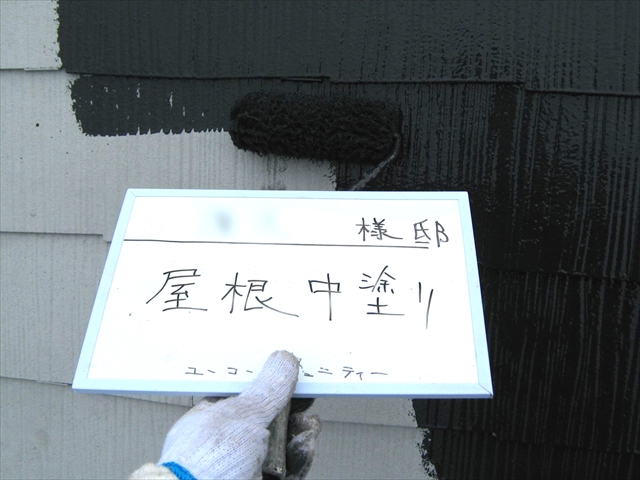 様邸
屋根中塗り
ユーコーコミュニティー